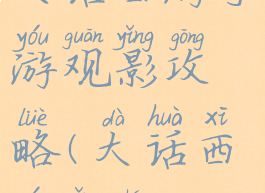 yóu guān yǐng gōng
游观影攻
lüè dà huà xī
略(大话西